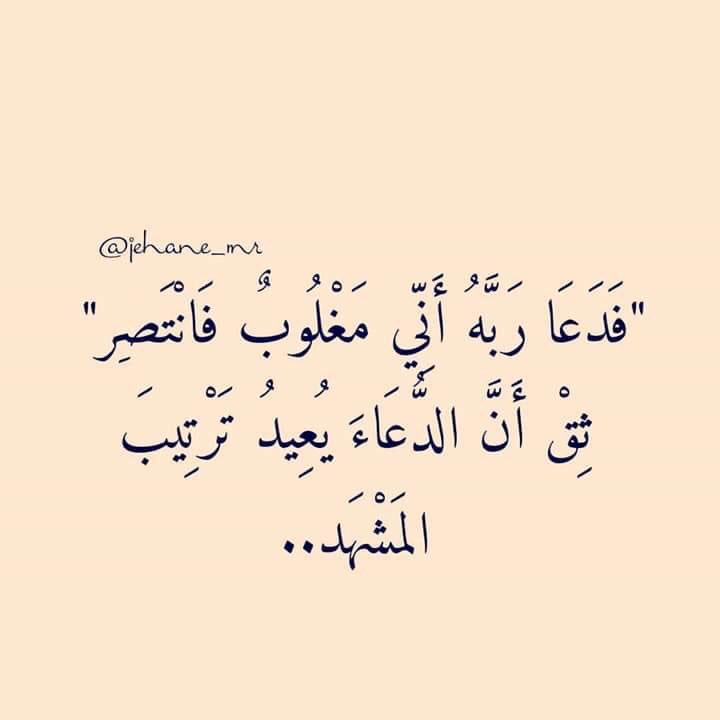 @jehane_mr
"فَدَعَا رَبَّهُ أَنِّي مَغْلُوبٌ فَانْتَصِر"
ثِقْ أَنَّ الدُّعَاءَ يُعِيدُ تَرْتِيبَ
المَشْهَد..